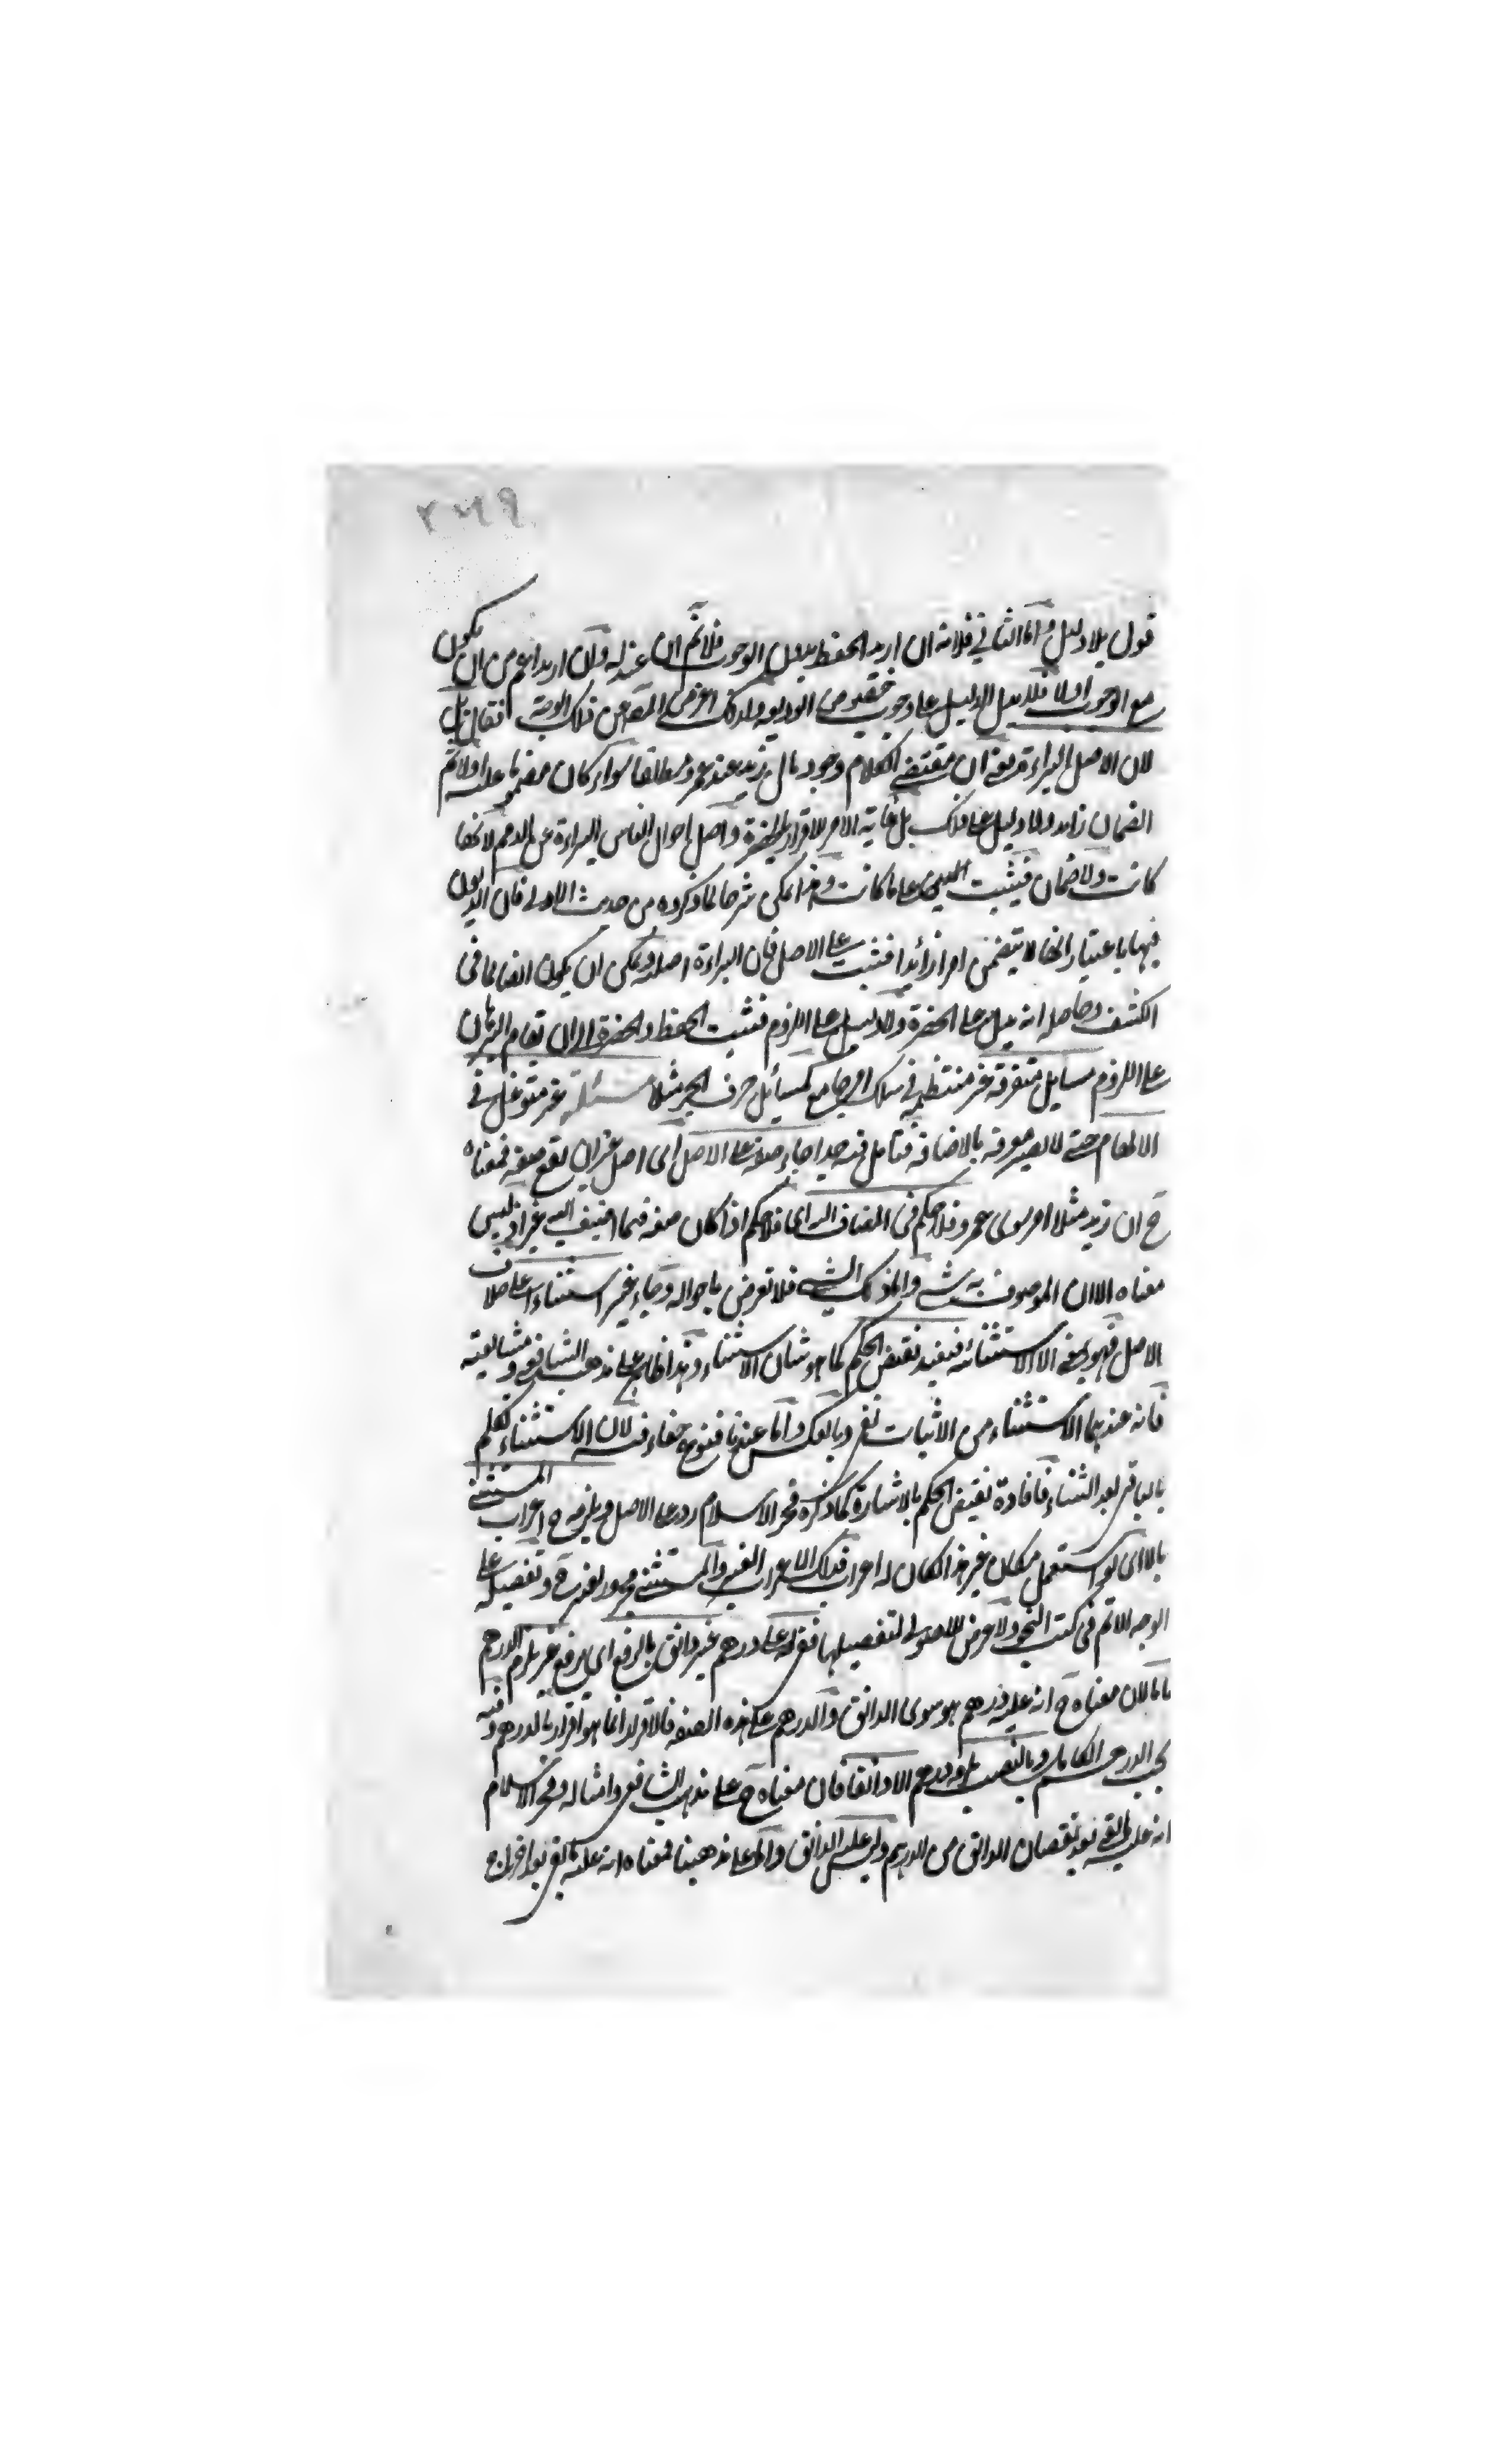 ٢٤٩
قول بلا دليل واما الثاني فلانه ان اريد الحفظ بدون الوجوب فلانم ان عند له وان اريد اعم من ان يكون
مع الوجوب اولا فلا يدل الدليل على وجوب خصوص الوديعه ولذلك اعرض المص عن ذلك الوجه فقال بل
لان الاصل البراءة يعني ان مقتضى الكلام وجود مال زيد عند عمرو مطلقا سواء كان مضمونا عليه اولا ثم
الضمان زايد ولا دليل على ذلك بل غاية الامر الاقرار بالحضرة واصل احوال الناس البراءة عن الذمم لانها
كانت ولا ضمان فيثبت على ما كانت وهذا يمكن شرحا لما ذكروه من حديث الاولى فان الدين
فيها باعتبار انها لا يتضمن امرا زائدا فيثبت على الاصل فان البراءة اصله ويمكن ان يكون ايضا لما في
الكشف وحاصله انه يدل على الحضرة ولا دليل على اللزوم فثبت الحفظ والحضرة الى ان تقام البرهان
على اللزوم مسايل متفرقة غير منتظمة في سلك امر جامع كمسائل حرف الجر مثلا مسئلة غير متوغل في
الابهام حتى لا يصير معرفة بالاضافة فتامل فيه جيدا جاء صفة على الاصل اى اصل غير ان يقع صفة فمعناه
ح ان زيد مثلا امر سوى عمرو فلا حكم في المضاف اليه اى فلا حكم اذا كان صفة فيما اضيف اليه غير اذ ليس
معناه الا ان الموصوف به شئ واما ذلك الشئ فلا تعرض باحواله وجاء غير استثناء على خلاف
الاصل فهو بمعنى الا الاستثنائية فيفيد نقيض الحكم كما هو شان الاستثناء وهذا ظاهر على مذهب الشافعي ومشايعيه
فانه عندهما الاستثناء من الاثبات نفي وبالعكس واما عندنا فنوع خفاء فيه لان الاستثناء تكلم
بالباقي بعد الثنيا فافادة نقيض الحكم بالاشارة كما ذكره فخر الاسلام رد على الاصل ويلزمه ح اعراب المستثنى
بالا اى لو استعمل مكان غير هذا لكان له اعراب فذاك الاعراب لغير والمستثنى مجرور لغير ح وتفصيله على
الوجه الاتم في كتب النحو ولا غرض للاصولي لتفصيلها فقوله على درهم غير دانق بالرفع اى برفع غير يلزم الدرهم
تاما لان معناه ح انه عليه درهم هو سوى الدانق والدرهم على هذه الصفة فالاقرار انما هو اقرار بالدرهم وفيه
يجب الدرهم الكامل وبالنصب يلزمه درهم الا دانقا فان معناه ح على مذهب الشافعي وامثاله وفخر الاسلام
انه عليه ما بقي بعد نقصان الدانق من الدرهم وليس عليه الدانق واما على مذهبنا فمعناه انه عليه ما بقي بعد اخراج